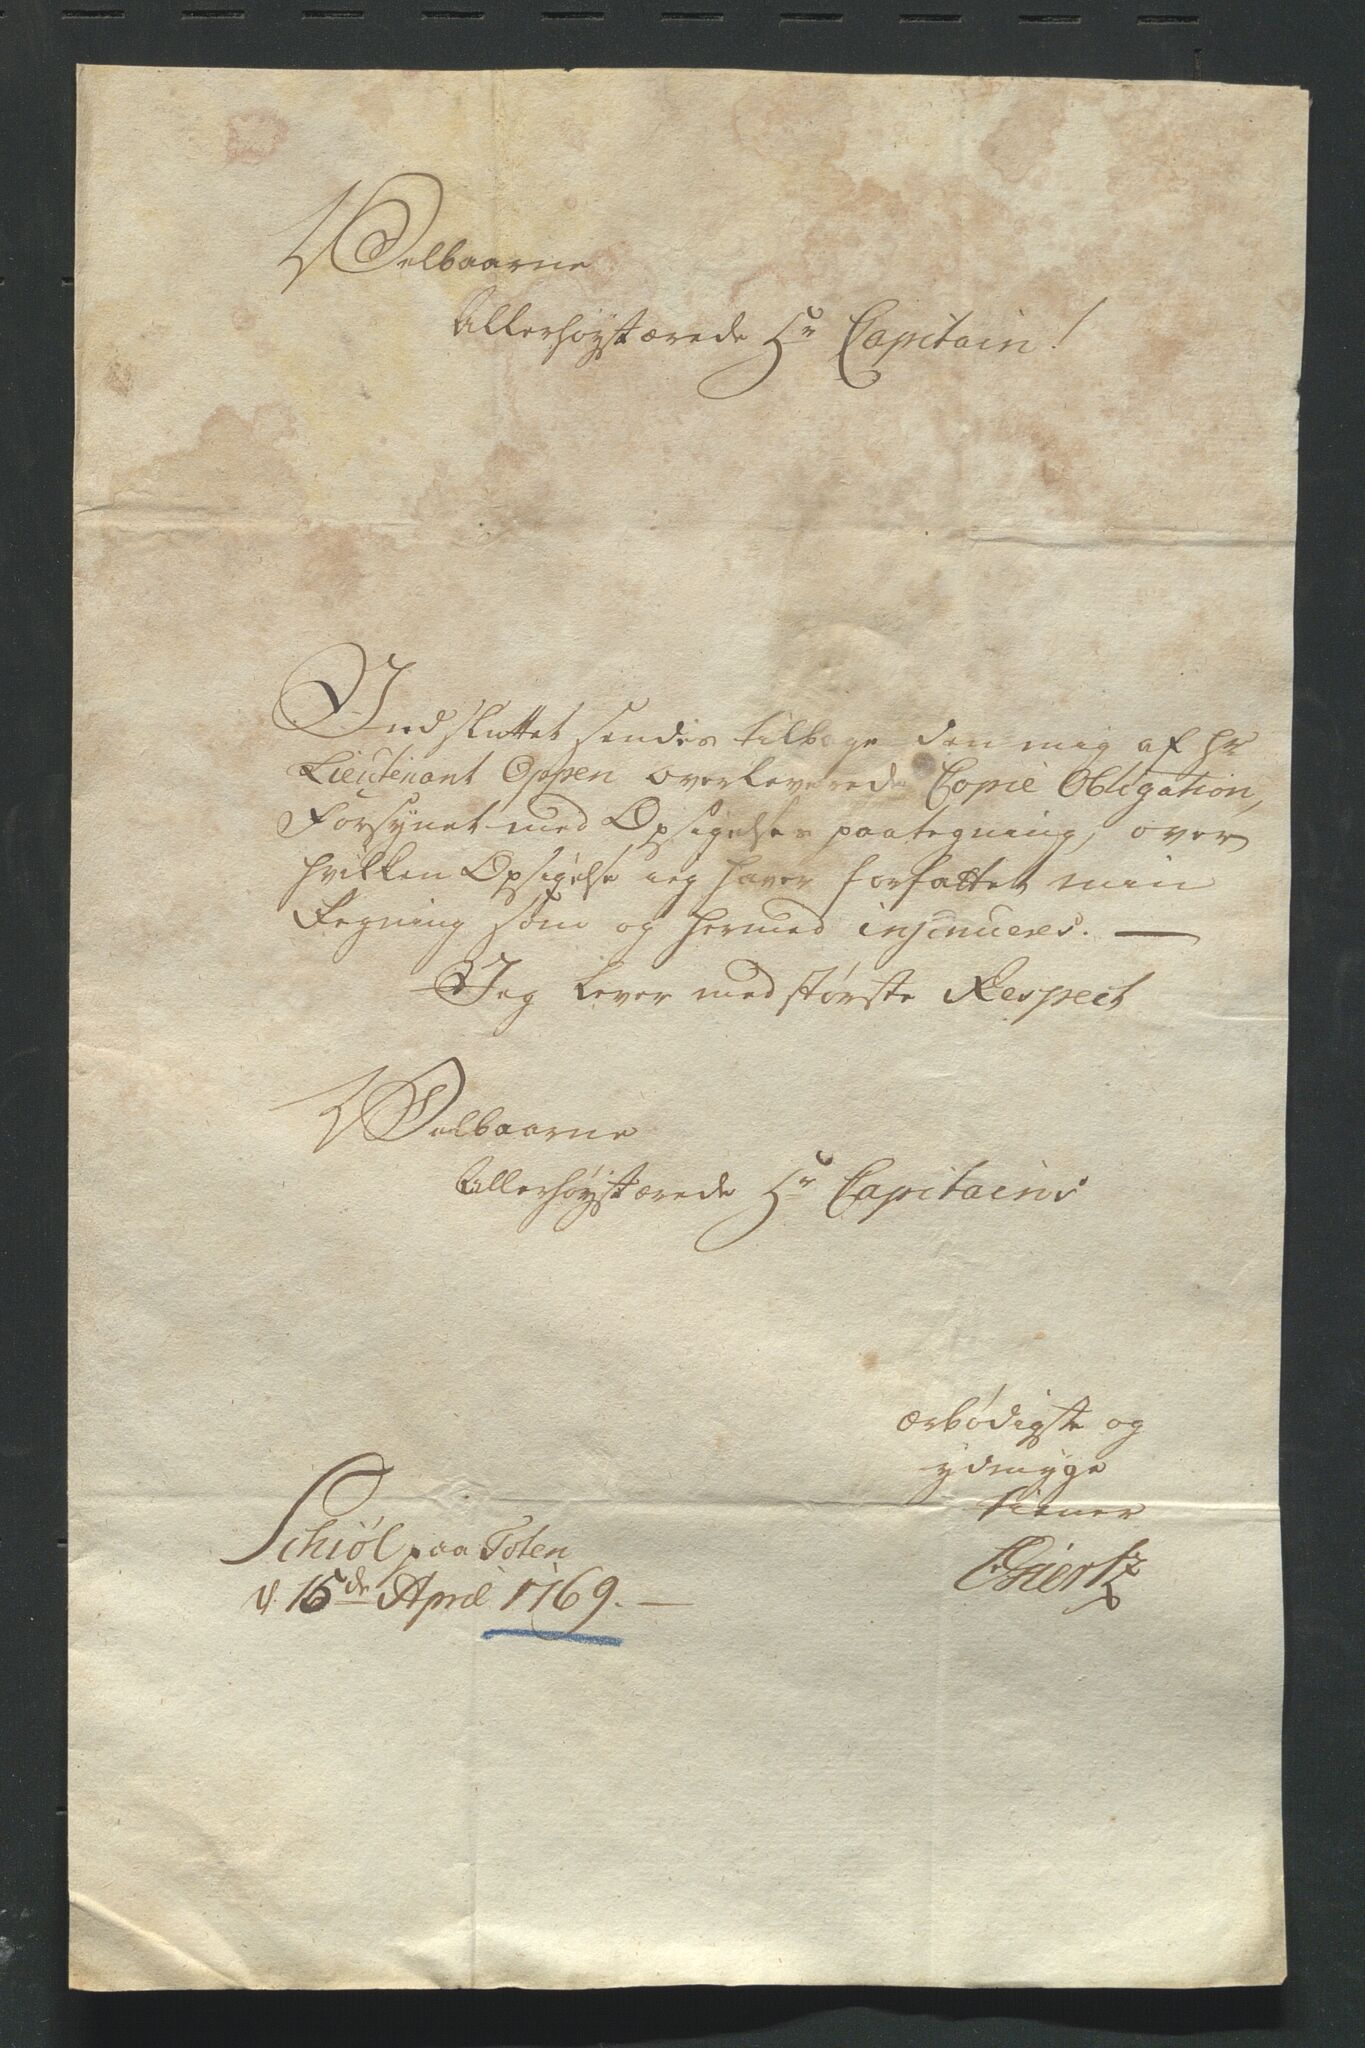 Velbaarne
Allerhøystærede Hr Capitain!
Indsluttet sendes tilbage den mig af hr
Lieutenant Oppen overleverede Copie Obligation,
Forsynet med Opsigelses paategning, over
hvilken Opsigelse ieg haver forfattet min
Regning som og hermed insinueres. —
Jeg lever med største Respect
Velbaarne
Allerhøystærede Hr Capitains
ærbødigste og
ydmyge
tiener
Schiøl paa Toten
d. 15de April 1769. —